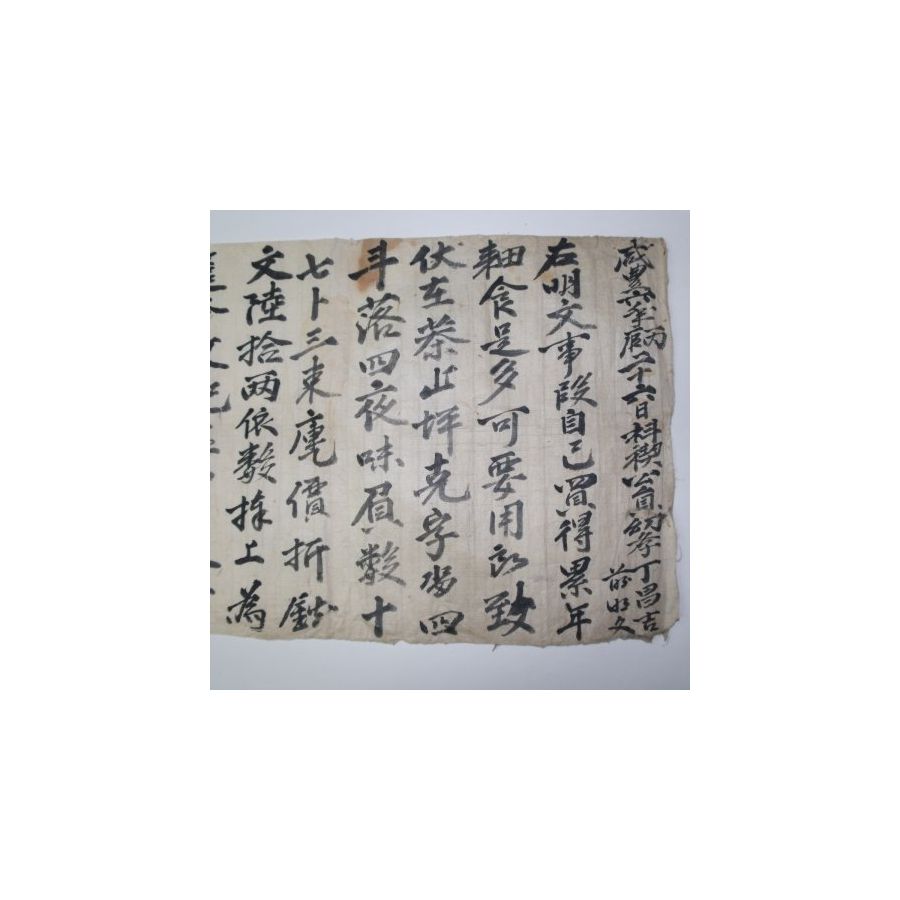 咸豊六年丙 二十六日科稧公員幼學丁昌吉
前明文
右明文事段自己買得累年
耕食是多可要用所致
伏在茶山坪克字畓四
斗落四夜味負數十
七卜三束庫價折錢
文陸拾兩依數捧上爲